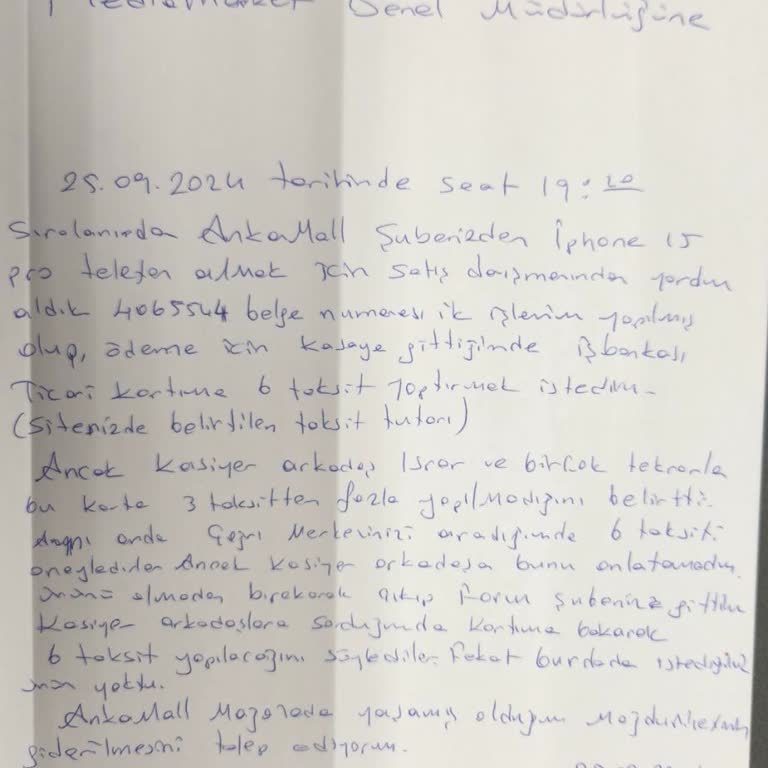 MediaMarket Genel Müdürlüğüne
25.09.2024 tarihinde saat 19:20
Sıralarında AnkaMall Şubenizden İphone 15
pro telefon almak için satış danışmanından yardım
aldık 4065544 belge numarası ile işlerim yapılmış
olup, ödeme için kasaya gittiğimde işbankası
Ticari kartıma 6 taksit yaptırmak istedim.
(Sitenizde belirtilen taksit tutarı)
Ancak Kasiyer arkadaş Israr ve birçok tekrarla
bu karta 3 taksitten fazla yapılmadığını belirtti.
Aynı anda Çağrı Merkezinizi aradığımda 6 taksiti
onayladılar Ancak kasiyer arkadaşa bunu anlatamadım.
ürünü almadan bırakarak çıkıp Forum Şubenize gittim
Kasiyer arkadaşlara sorduğumda kartıma bakarak
6 taksit yapılacağını söylediler. Fakat burdada istediğimiz
ürün yoktu.
AnkaMall Mağazada yaşamış olduğum mağduriyetimin
giderilmesini talep ediyorum.